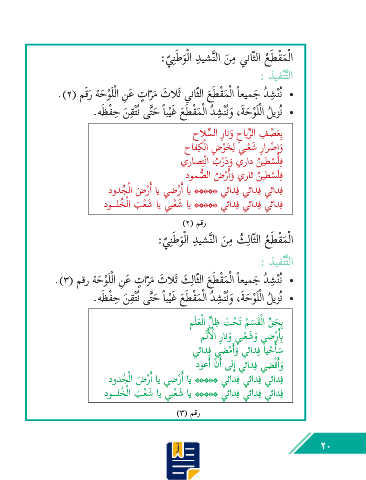 الْمَقْطَعُ الثّاني مِنَ النَّشيدِ الْوَطَنِيِّ:
التَّنْفيذ :
• نُنْشِدُ جَميعاً الْمَقْطَعَ الثّاني ثَلاثَ مَرّاتٍ عَنِ اللَّوْحَةِ رَقْمِ (٢).
• نُزيلُ اللَّوْحَةَ، وَنُنْشِدُ الْمَقْطَعَ غَيْباً حَتَّى نُتْقِنَ حِفْظَه.
بِعَصْفِ الرِّياحِ وَنارِ السِّلاح
وَإصْرارِ شَعْبي لِخَوْضِ الْكِفاح
فِلَسْطينُ داري وَدَرْبُ انْتِصاري
فِلَسْطينُ ثاري وَأَرْضُ الصُّمود
فِدائي فِدائي فِدائي ***** يا أَرْضي يا أَرْضَ الْجُدود
فِدائي فِدائي فِدائي ***** يا شَعْبي يا شَعْبَ الْخُلـــود
رقم (٢)
الْمَقْطَعُ الثّالِثُ مِنَ النَّشيدِ الْوَطَنِيِّ:
التَّنْفيذ :
• نُنْشِدُ جَميعاً الْمَقْطَعَ الثّالِثَ ثَلاثَ مَرّاتٍ عَنِ اللَّوْحَةِ رقم (٣).
• نُزيلُ اللَّوْحَةَ، وَنُنْشِدُ الْمَقْطَعَ غَيْباً حَتَّى نُتْقِنَ حِفْظَه.
بِحَقِّ الْقَسَمْ تَحْتَ ظِلِّ الْعَلَم
بِأَرْضي وَشَعْبي وَنارِ الْأَلَم
سَأَحْيا فِدائي وَأَمْضي فِدائي
وَأَقْضي فِدائي إلَى أَنْ أَعود
فِدائي فِدائي فِدائي ***** يا أَرْضي يا أَرْضَ الْجُدود
فِدائي فِدائي فِدائي ***** يا شَعْبي يا شَعْبَ الْخُلـــود
رقم (٣)
٢٠